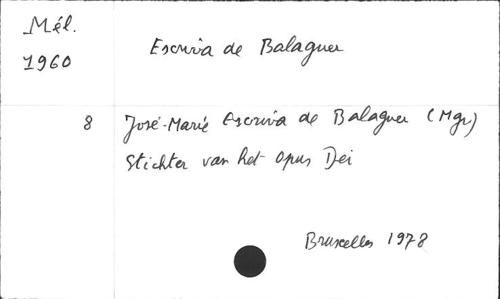 Mél.
1960
Escriva de Balaguer
8 José-Marie Escriva de Balaguer (Mgr)
Stichter van het Opus Dei
Bruxelles 1978